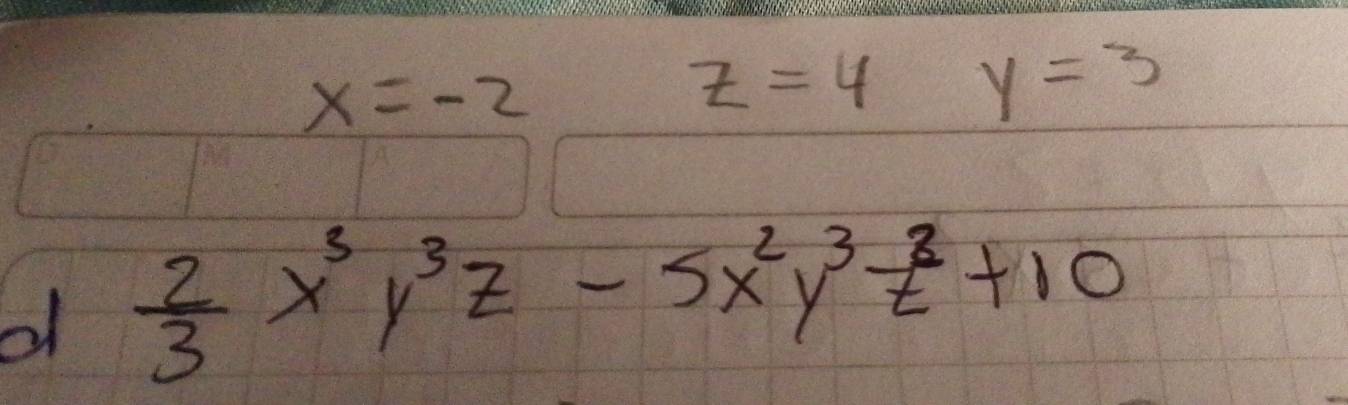 x = -2 z = 4 y = 3
D M A
d 2/3 x³y³z - 5x²y³z + 10